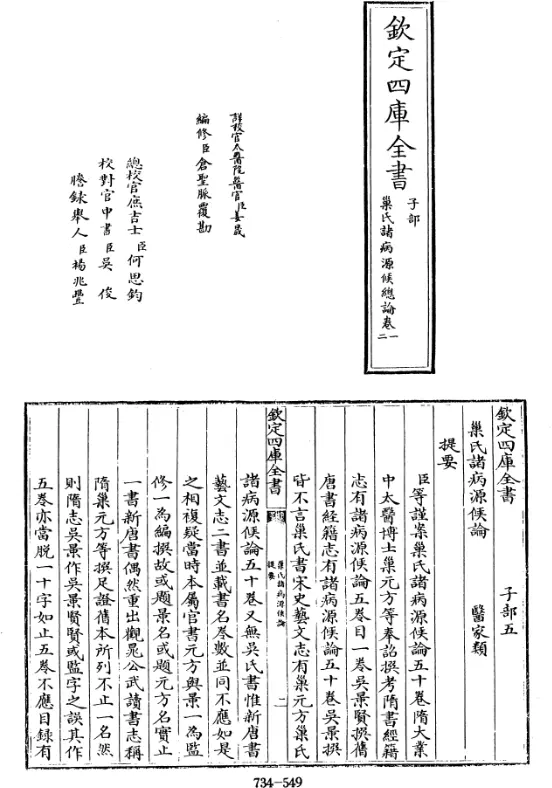 欽定四庫全書
子部
巢氏諸病源候總論卷一
二
詳校官太醫院醫官臣姜晟
編修臣倉聖脈覆勘
總校官庶吉士臣何思鈞
校對官中書臣吳俊
謄錄舉人臣楊兆豐
欽定四庫全書 子部五
巢氏諸病源候論 醫家類
提要
臣等謹案巢氏諸病源候論五十卷隋大業
中太醫博士巢元方等奉詔撰考隋書經籍
志有諸病源候論五卷目一卷吳景賢撰舊
唐書經籍志有諸病源候論五十卷吳景撰
皆不言巢氏書宋史藝文志有巢元方巢氏
欽定四庫全書
巢氏諸病源候論
提要
諸病源候論五十卷又無吳氏書惟新唐書
藝文志二書並載書名卷數並同不應如是
之相複疑當時本屬官書元方與景一為監
修一為編撰故或題景名或題元方名實止
一書新唐書偶然重出觀晁公武讀書志稱
隋巢元方等撰足證舊本所列不止一名然
則隋志吳景作吳景賢賢或監字之誤其作
五卷亦當脫一十字如止五卷不應目錄有
734-549